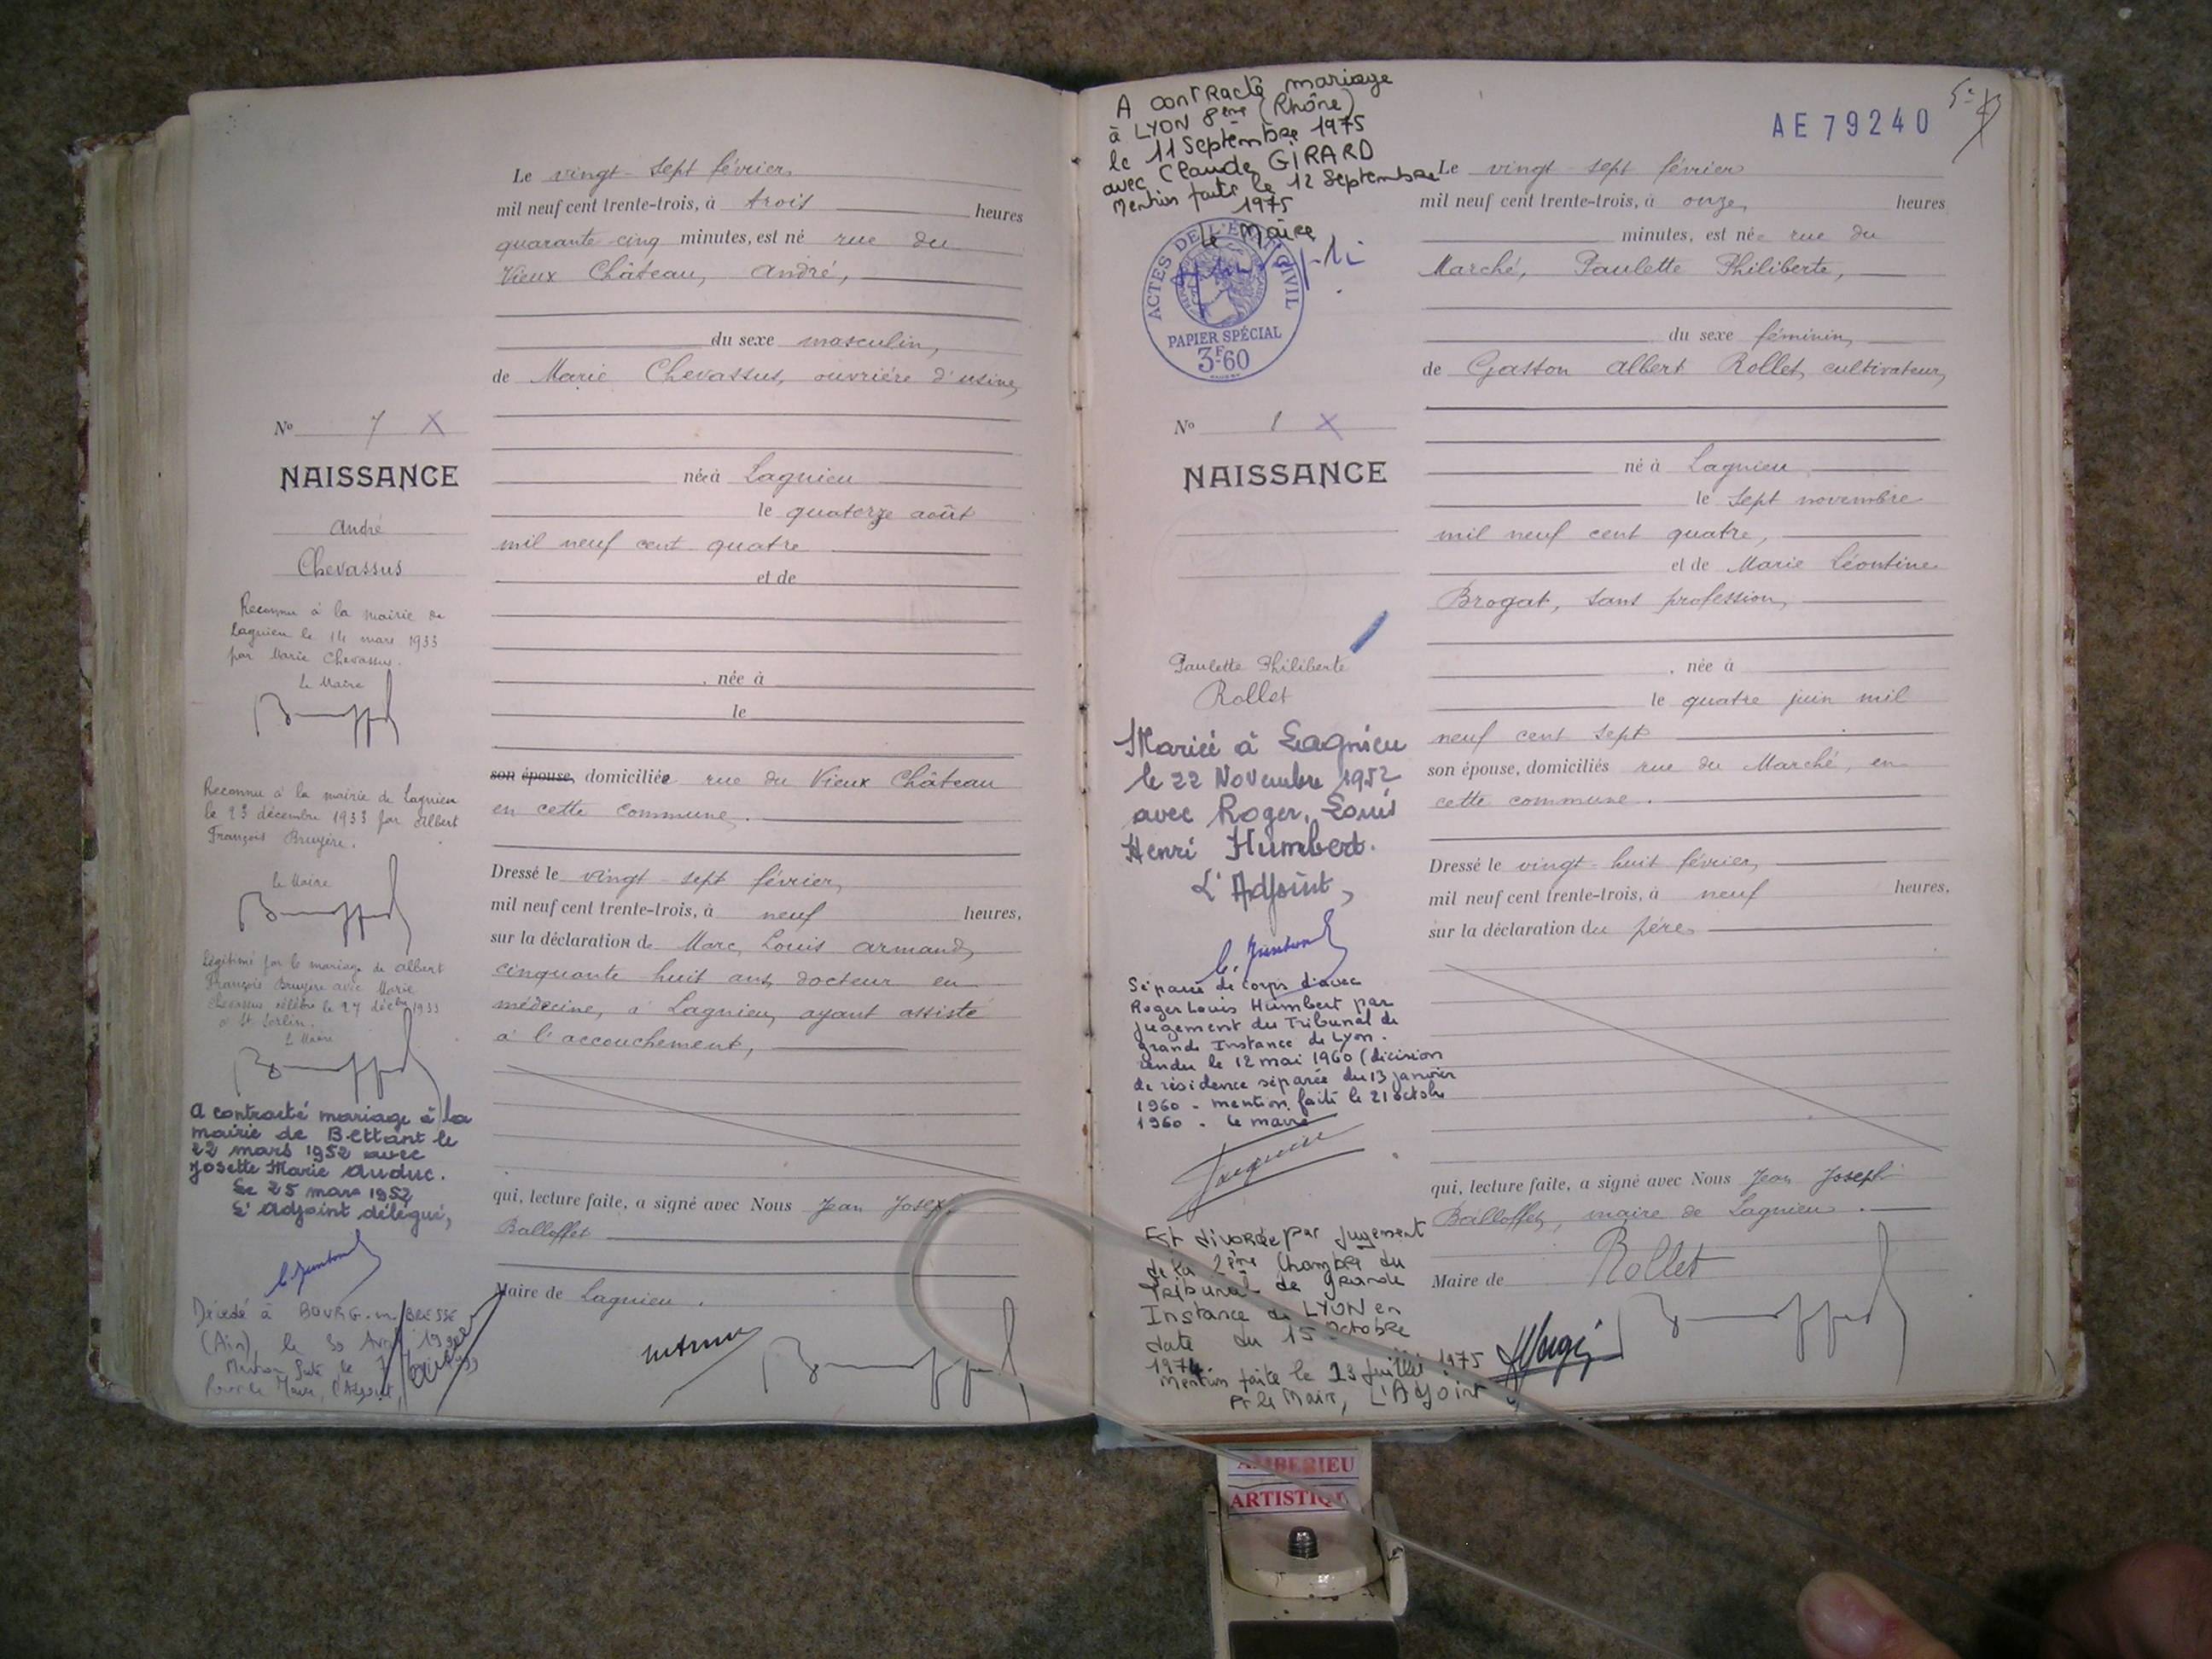 Le vingt-sept février
mil neuf cent trente-trois, à trois heures
quarante cinq minutes, est né rue du
Vieux Château, André,
du sexe masculin,
de Marie Chevassus, ouvrière d'usine,
née à Lagnieu
le quatorze août
mil neuf cent quatre
et de
née à
le
son épouse, domiciliée rue du Vieux Château
en cette commune.
Dressé le vingt-sept février,
mil neuf cent trente-trois, à neuf heures,
sur la déclaration de Marc, Louis Armand,
cinquante huit ans, docteur en
médecine, à Lagnieu, ayant assisté
à l'accouchement,
qui, lecture faite, a signé avec Nous Jean Joseph
Balloffet
Maire de Lagnieu.
No 7 X
NAISSANCE
André
Chevassus
Reconnu à la mairie de
Lagnieu le 14 mars 1933
par Marie Chevassus.
Le Maire
Reconnu à la mairie de Lagnieu
le 23 décembre 1933 par Albert
François Bruyère.
Le Maire
Légitimé par le mariage de Albert
François Bruyère avec Marie
Chevassus célébré le 27 décbre 1933
à St Sorlin.
Le Maire
A contracté mariage à la
mairie de Bettant le
22 mars 1952 avec
Josette Marie Auduc.
Le 25 mars 1952
L'Adjoint délégué,
Décédé à BOURG-en-BRESSE
(Ain), le 30 Avril
Mention faite le 7
Pour le Maire, l'Adjoint,
A contracté mariage
à LYON 8ème (Rhône)
le 11 Septembre 1975
avec Claude GIRARD
Mention faite le 12 Septembre
1975
Le Maire
ACTES DE L'ÉTAT CIVIL
PAPIER SPÉCIAL
3F60
AE79240
No X
NAISSANCE
Paulette Philiberte
Rollet
Mariée à Lagnieu
le 22 Novembre 1952
avec Roger, Louis
Henri Humbert.
L'Adjoint,
Séparée de corps d'avec
Roger Louis Humbert par
jugement du Tribunal de
grande Instance de Lyon.
rendu le 12 mai 1960 (décision
de résidence séparée du 13 janvier
1960 - mention faite le 21 octobre
1960 - Le maire
Est divorcée par jugement
de la 2ème Chambre du
Tribunal de Grande
Instance de LYON en
date du 15 Octobre
1974.
Mention faite le 23 Juillet 1975
Pr le Maire, L'Adjoint
Le vingt-sept février
mil neuf cent trente-trois, à onze, heures
minutes, est née rue du
Marché, Paulette Philiberte,
du sexe féminin,
de Gaston Albert Rollet, cultivateur,
né à Lagnieu
le sept novembre
mil neuf cent quatre,
et de Marie Léontine
Brogat, sans profession,
née à
le quatre juin mil
neuf cent sept
son épouse, domiciliés rue du Marché, en
cette commune.
Dressé le vingt-huit février,
mil neuf cent trente-trois, à neuf heures,
sur la déclaration du père
qui, lecture faite, a signé avec Nous Jean Joseph
Balloffet, maire de Lagnieu.
Maire de
Rollet
AMBERIEU
ARTISTIQU